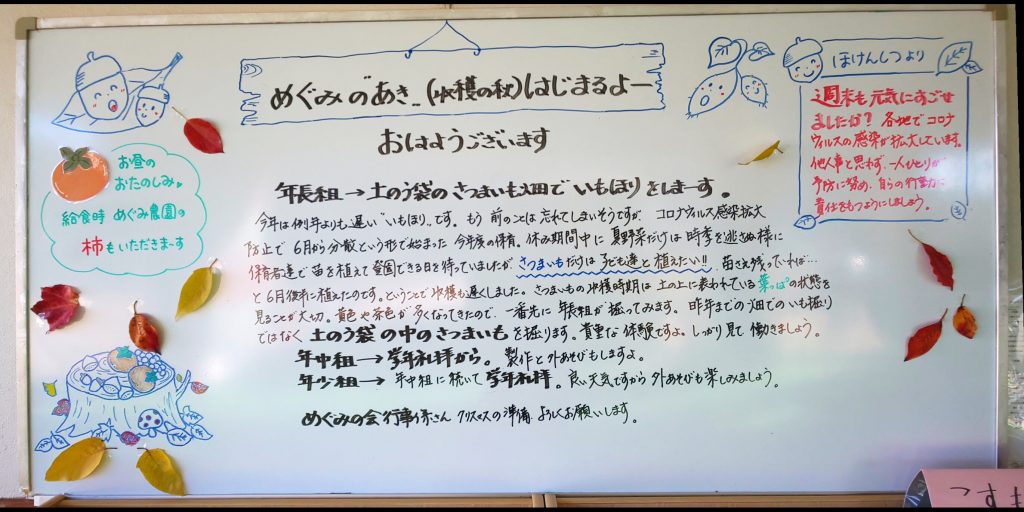 めぐみのあき (収穫の秋) はじまるよー
おはようございます
年長組→土のう袋のさつまいも畑でいもほりをしまーす。
今年は例年よりも遅い"いもほり"です。もう前のことは忘れてしまいそうですが、コロナウィルス感染拡大
防止で6月から分散という形で始まった今年度の保育。休み期間中に夏野菜だけは時季を逃さぬ様に
保育者達で苗を植えて登園できる日を待っていましたが、さつまいもだけは子ども達と植えたい!! 苗さえ残っていれば…
と6月後半に植えたのです。ということで収穫も遅くしました。さつまいもの収穫時期は土の上に表われている葉っぱの状態を
見ることが大切。黄色や茶色が多くなってきたので、一番先に年長組が掘ってみます。昨年までの畑でのいも掘り
ではなく土のう袋の中のさつまいもを掘ります。貴重な体験ですよ。しっかり見て働きましょう。
年中組→学年礼拝から。製作と外あそびもしますよ。
年少組→年中組に続いて学年礼拝。良い天気ですから外あそびも楽しみましょう。
めぐみの会行事係さん クリスマスの準備 よろしくお願いします。
お昼の
おたのしみ
給食時 めぐみ農園の
柿もいただきまーす
ほけんしつより
週末も元気にすごせ
ましたか? 各地でコロナ
ウィルスの感染が拡大しています。
他人事と思わず、一人ひとりが
予防に努め、自らの行動に
責任をもつようにしましょう。